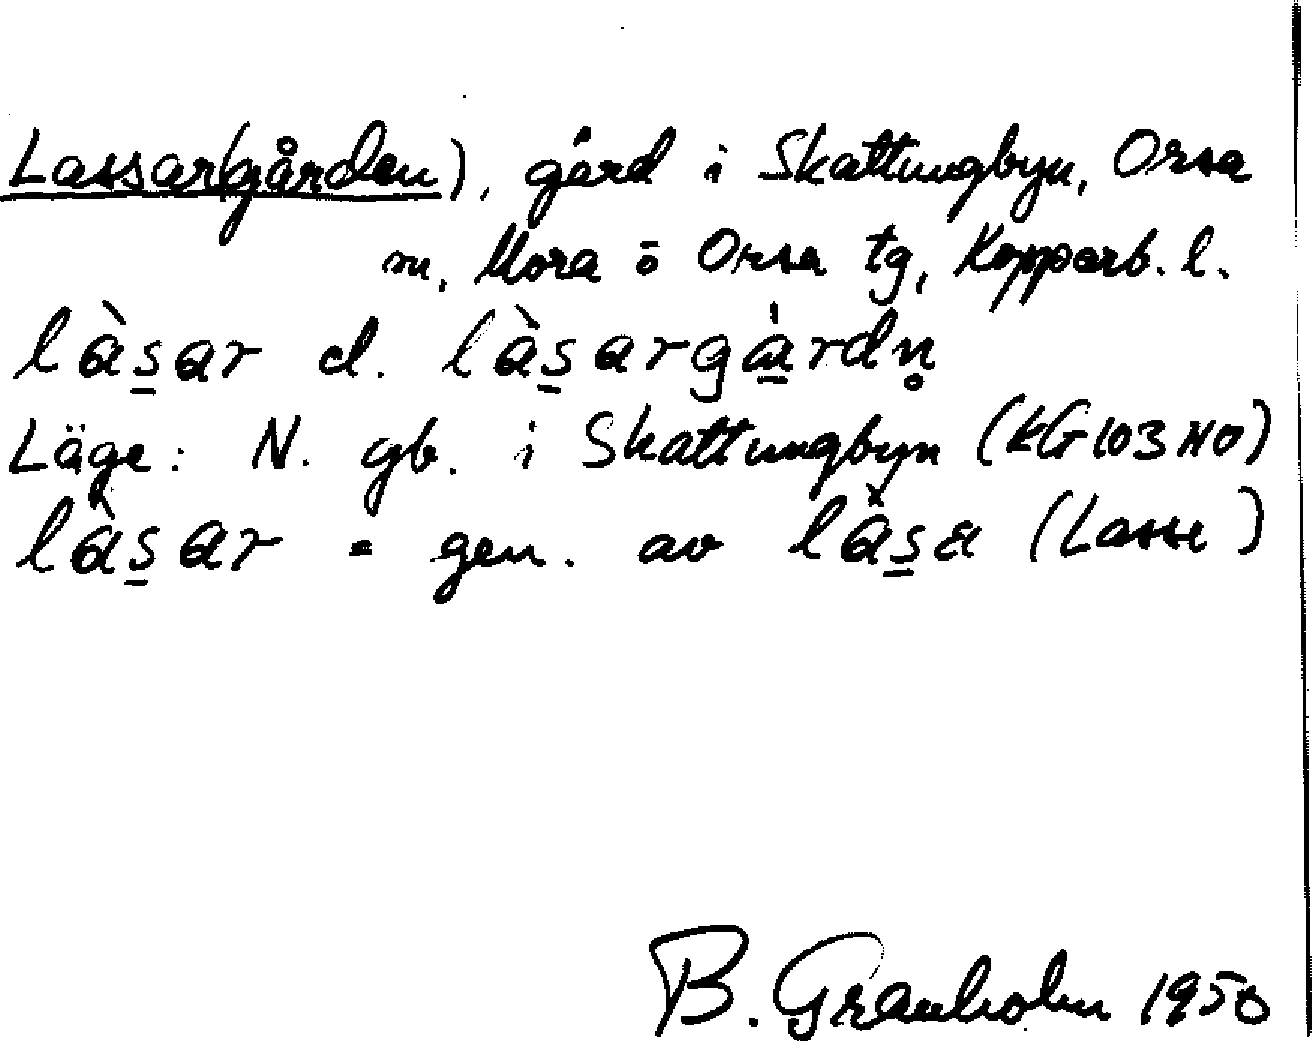 Lassar(gården), gård i Skattungbyn, Orsa
sn, Mora o Orsa tg, Kopparb. l.
là̱sar el. là̱sargá̱rdn̥
Läge: N. gb. i Skattungbyn (kG 103 NO)
làs̱ar = gen. av làs̱a (Lasse)
B. Granholm 1950